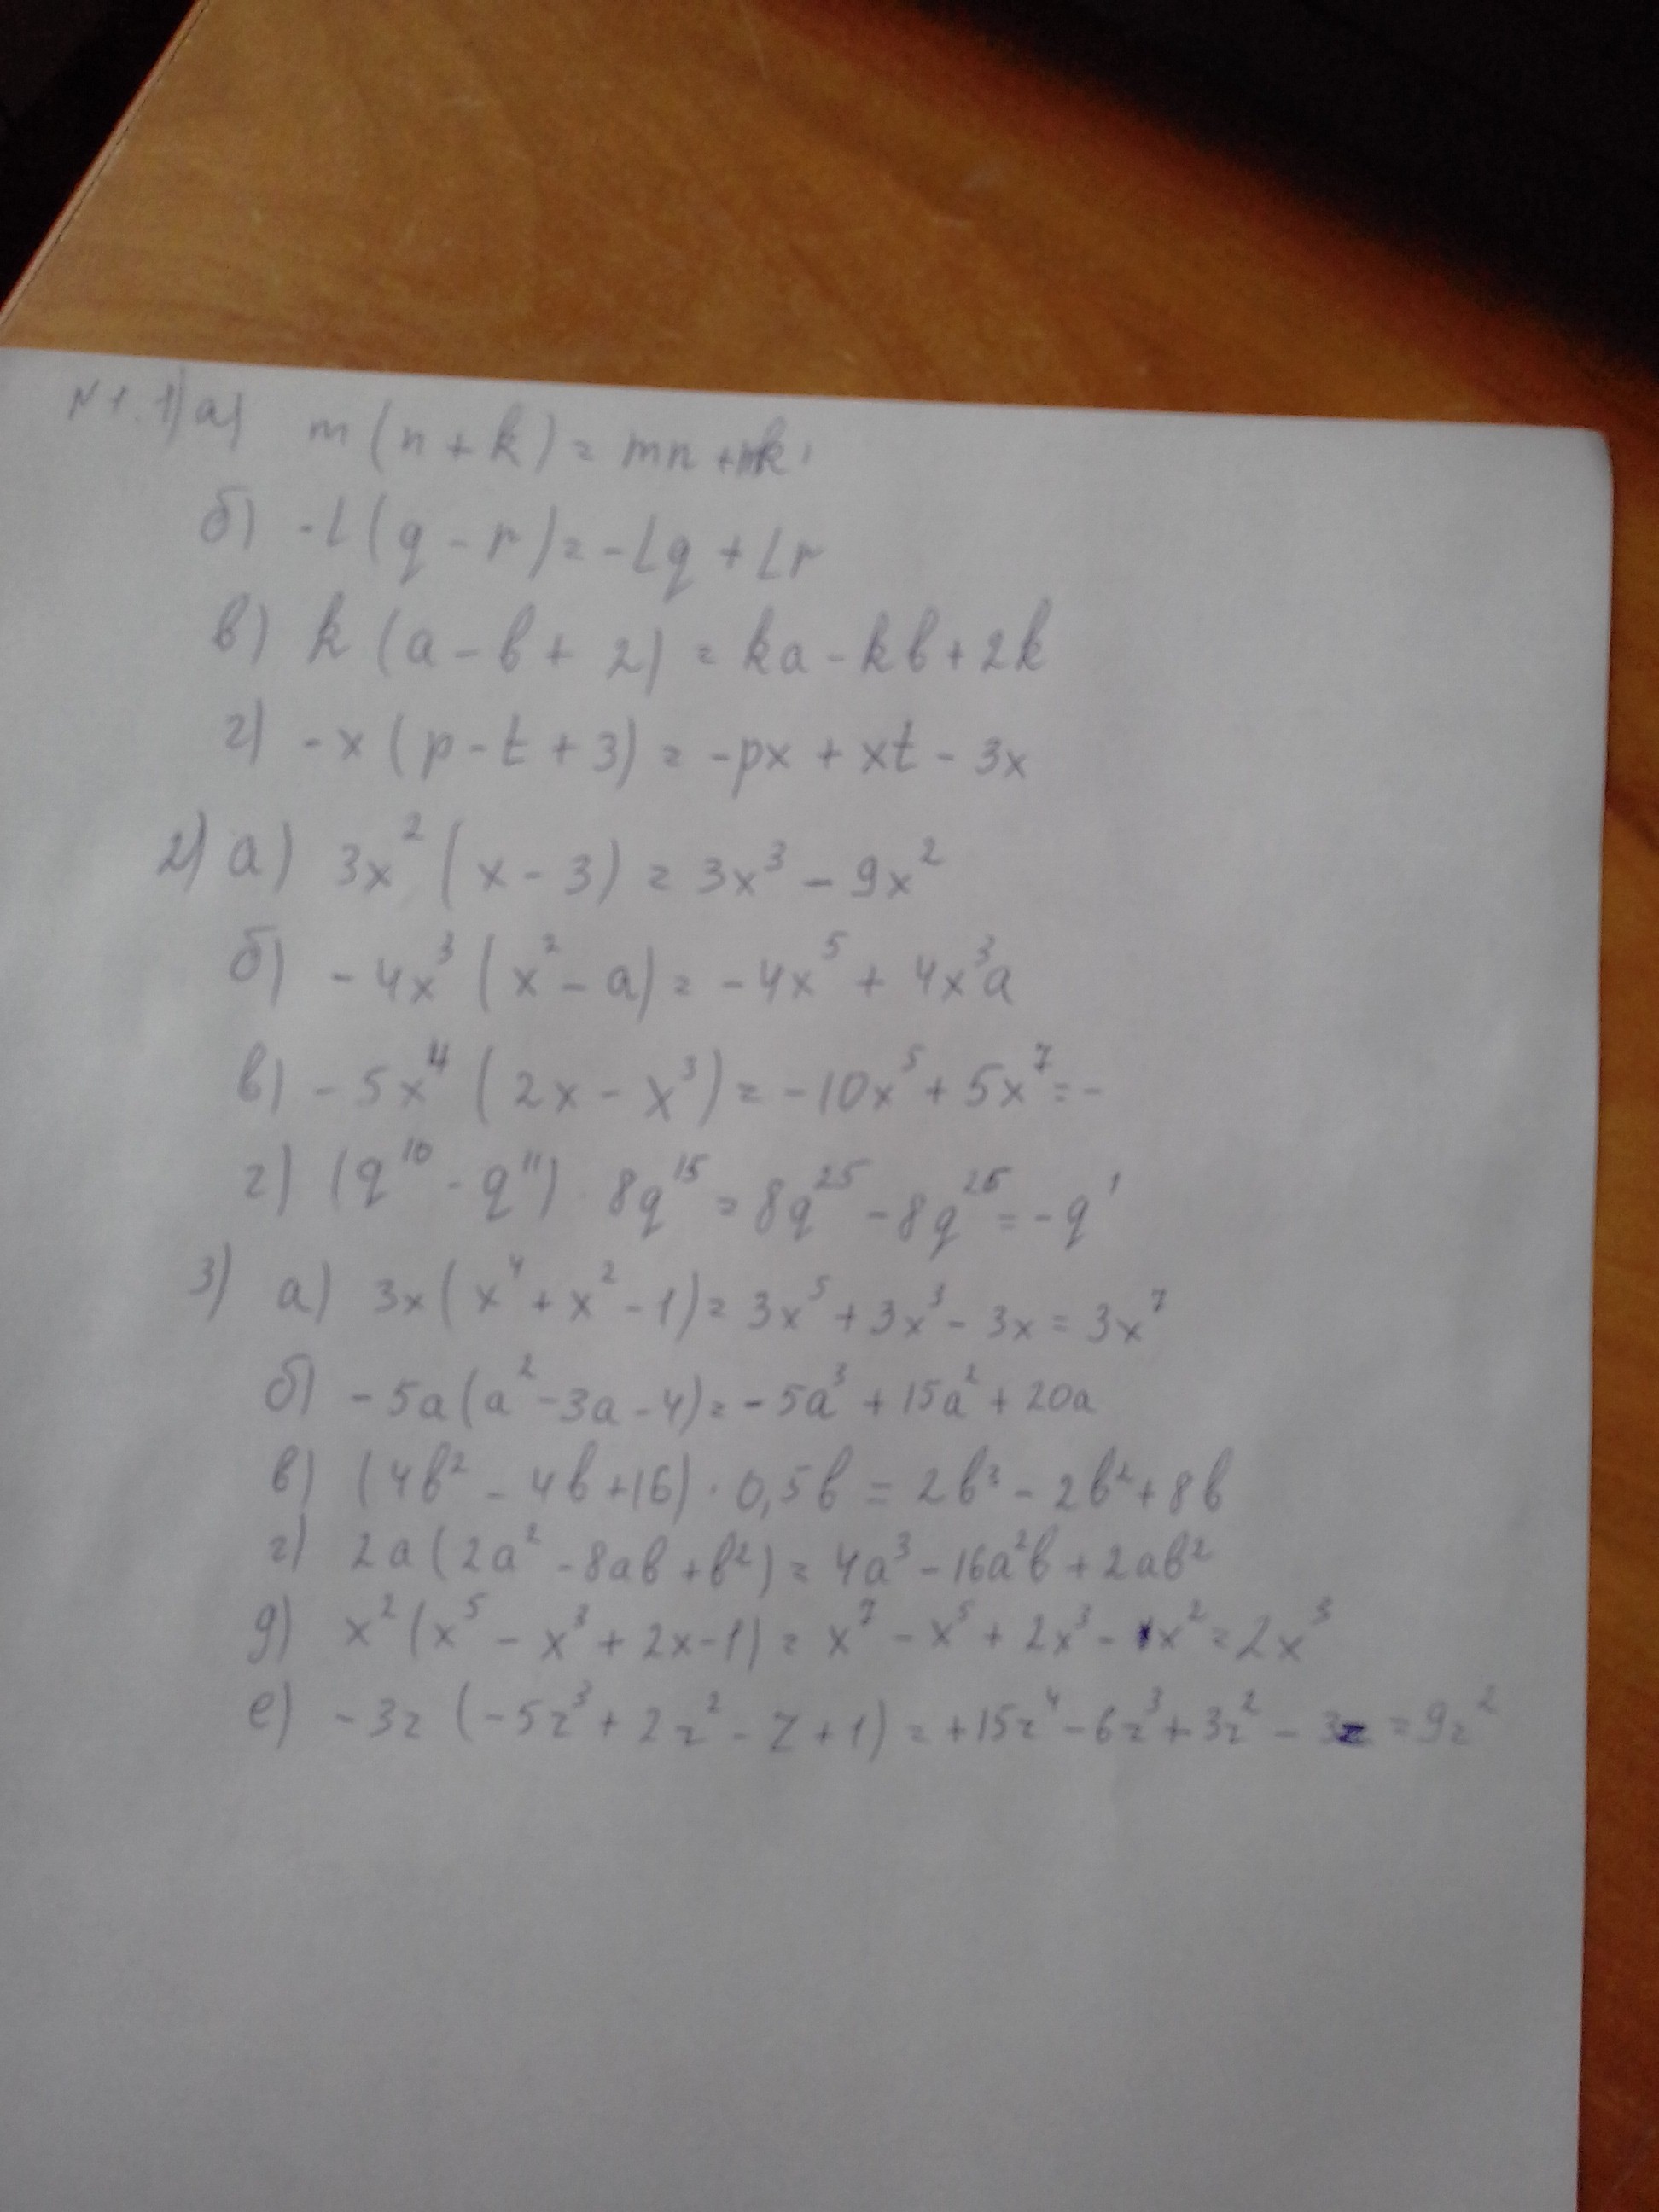 N1. 1) а) m(n+k)=mn+mk
б) -L(q-r)=-Lq+Lr
в) k(a-b+2)=ka-kb+2k
г) -x(p-t+3)=-px+xt-3x
2) а) 3x²(x-3)=3x³-9x²
б) -4x³(x²-a)=-4x⁵+4x³a
в) -5x⁴(2x-x³)=-10x⁵+5x⁷=-
г) (q¹⁰-q¹¹)·8q¹⁵=8q²⁵-8q²⁶=-q¹
3) а) 3x(x⁴+x²-1)=3x⁵+3x³-3x=3x⁷
б) -5a(a²-3a-4)=-5a³+15a²+20a
в) (4b²-4b+16)·0,5b=2b³-2b²+8b
г) 2a(2a²-8ab+b²)=4a³-16a²b+2ab²
д) x²(x⁵-x³+2x-1)=x⁷-x⁵+2x³-1x²=2x³
е) -3z(-5z³+2z²-z+1)=+15z⁴-6z³+3z²-3z=9z²